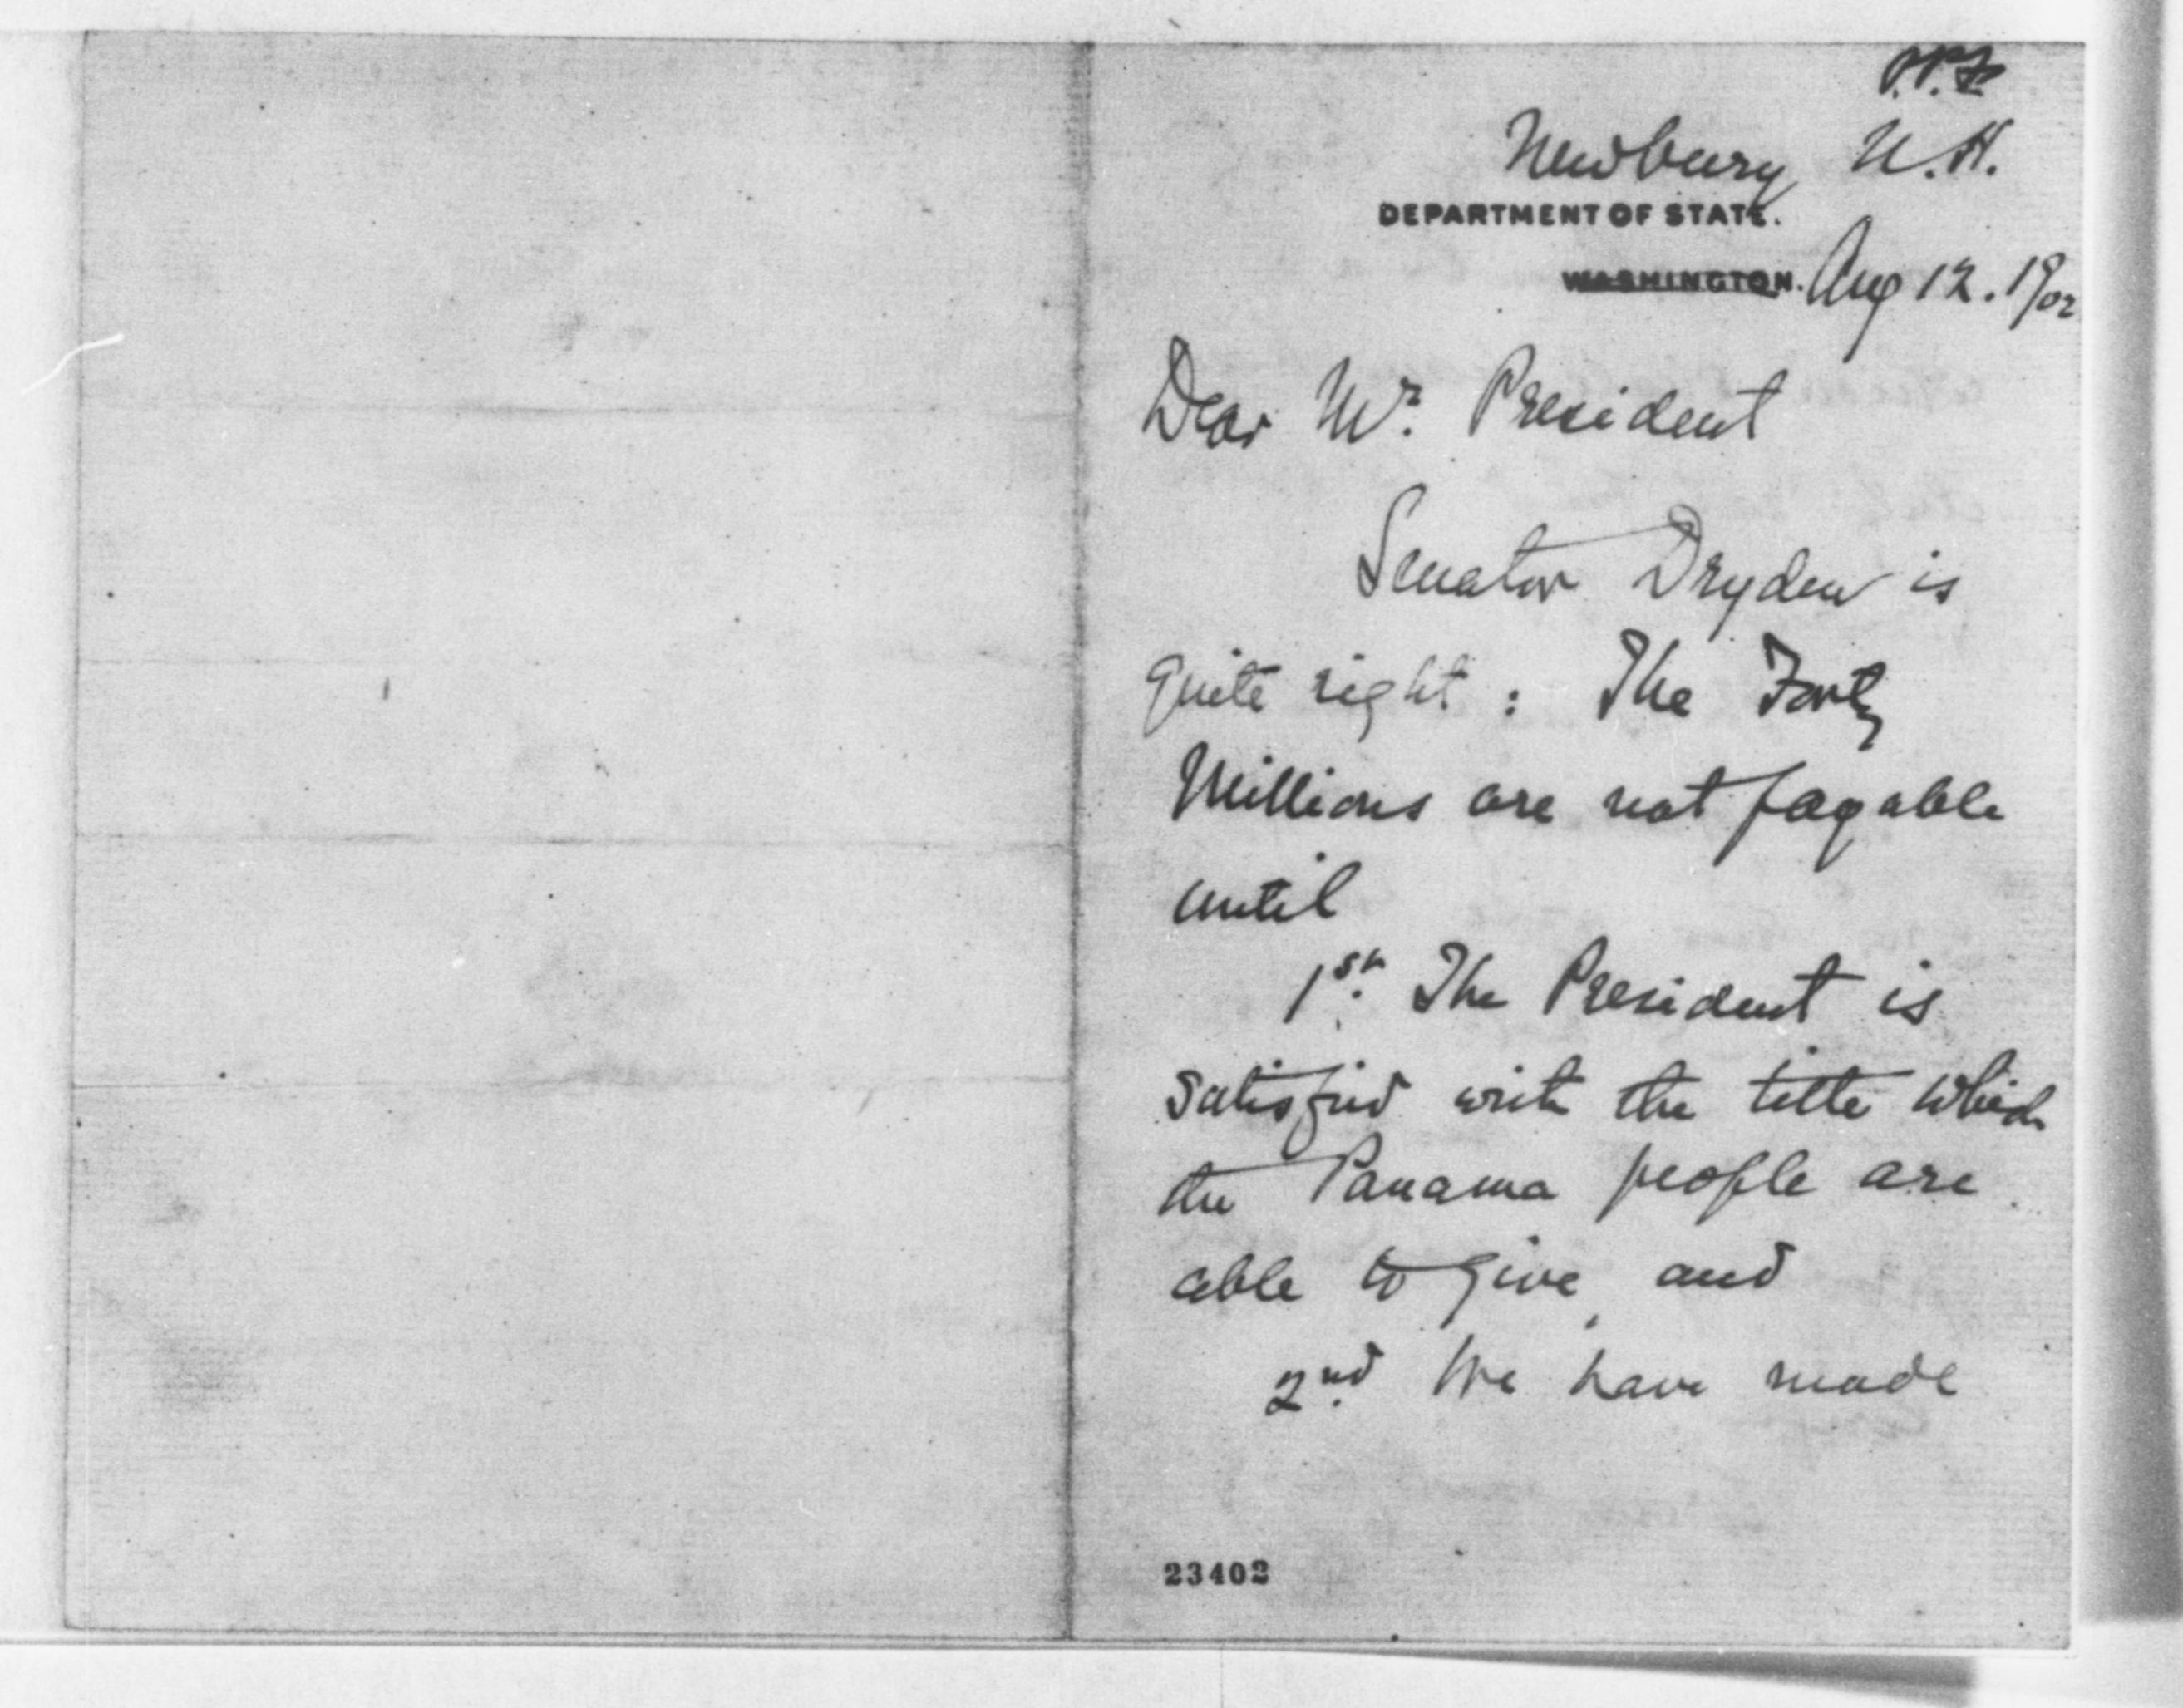 P.P.F
Newbury N.H.
DEPARTMENT OF STATE.
WASHINGTON. Aug 12. 1902
Dear Mr. President
Senator Dryden is
quite right: The Forty
Millions are not payable
until
1st. The President is
satisfied with the title which
the Panama people are
able to give, and
2nd. We have made
23402